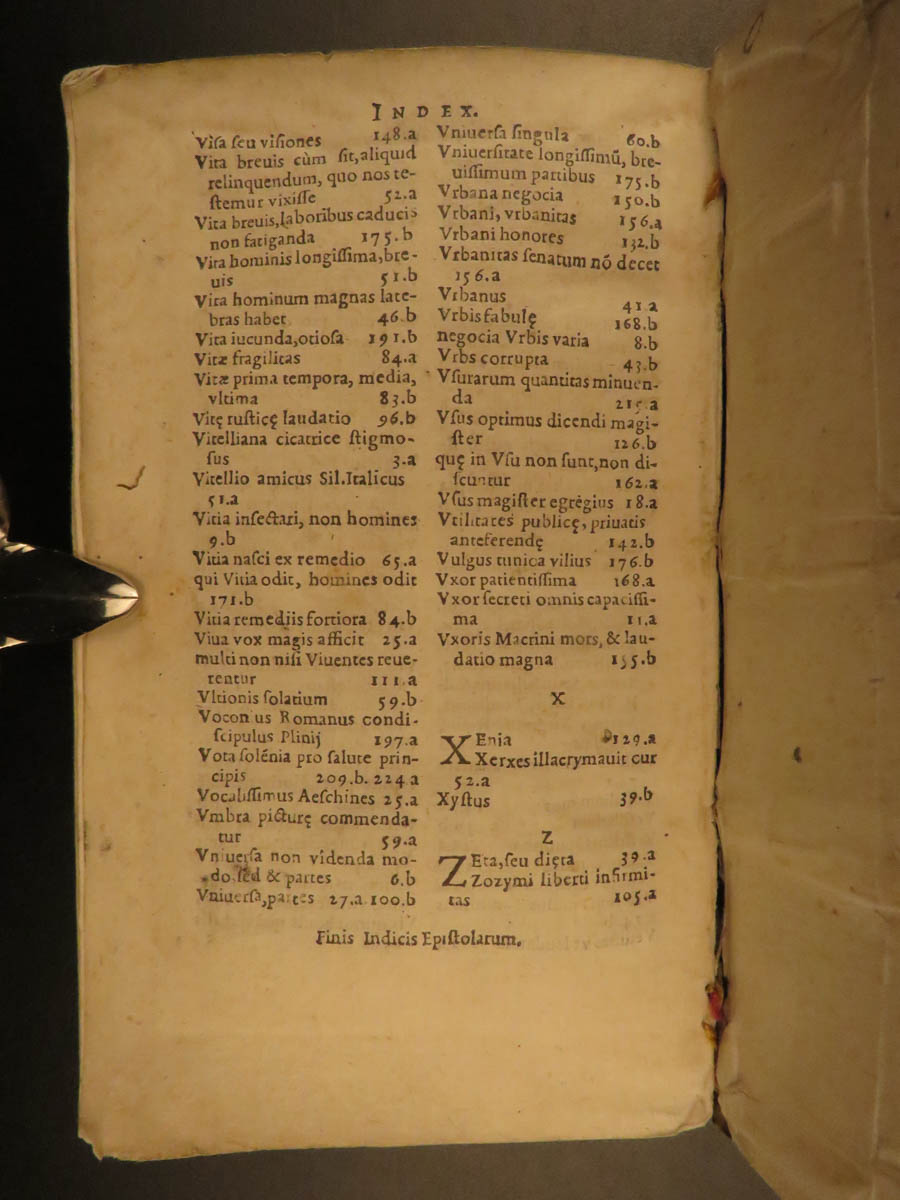 INDEX.
Visa seu visiones 148.a
Vita breuis cùm sit, aliquid
relinquendum, quo nos te-
stemur vixisse 52.a
Vita breuis, laboribus caducis
non fatiganda 175.b
Vita hominis longissima, bre-
uis 51.b
Vita hominum magnas late-
bras habet 46.b
Vita iucunda, otiosa 191.b
Vitæ fragilitas 84.a
Vitæ prima tempora, media,
vltima 83.b
Vitę rusticę laudatio 96.b
Vitelliana cicatrice stigmo-
sus 3.a
Vitellio amicus Sil. Italicus
51.a
Vitia insectari, non homines
9.b
Vitia nasci ex remedio 65.a
qui Vitia odit, homines odit
171.b
Vitia remediis fortiora 84.b
Viua vox magis afficit 25.a
multi non nisi Viuentes reue-
rentur 111.a
Vltionis solatium 59.b
Voconius Romanus condi-
scipulus Plinij 197.a
Vota solénia pro salute prin-
cipis 209.b. 224.a
Vocalissimus Aeschines 25.a
Vmbra picturę commenda-
tur 59.a
Vniuersa non videnda mo-
do, sed & partes 6.b
Vniuersa, partes 27.a. 100.b
Vniuersa singula 60.b
Vniuersitate longissimū, bre-
uissimum partibus 175.b
Vrbana negocia 150.b
Vrbani, vrbanitas 156.a
Vrbani honores 132.b
Vrbanitas senatum nō decet
156.a
Vrbanus 41.a
Vrbis fabulę 168.b
negocia Vrbis varia 8.b
Vrbs corrupta 43.b
Vsurarum quantitas minuen-
da 215.a
Vsus optimus dicendi magi-
ster 126.b
quę in Vsu non sunt, non di-
scuntur 162.a
Vsus magister egregius 18.a
Vtilitates publicę, priuatis
anteferendę 142.b
Vulgus tunica vilius 176.b
Vxor patientissima 168.a
Vxor secreti omnis capacissi-
ma 11.a
Vxoris Macrini mors, & lau-
datio magna 155.b
X
XEnia 129.a
Xerxes illacrymauit cur
52.a
Xystus 39.b
Z
ZEta, seu dięta 39.a
Zozymi liberti infirmi-
tas 105.a
Finis Indicis Epistolarum.